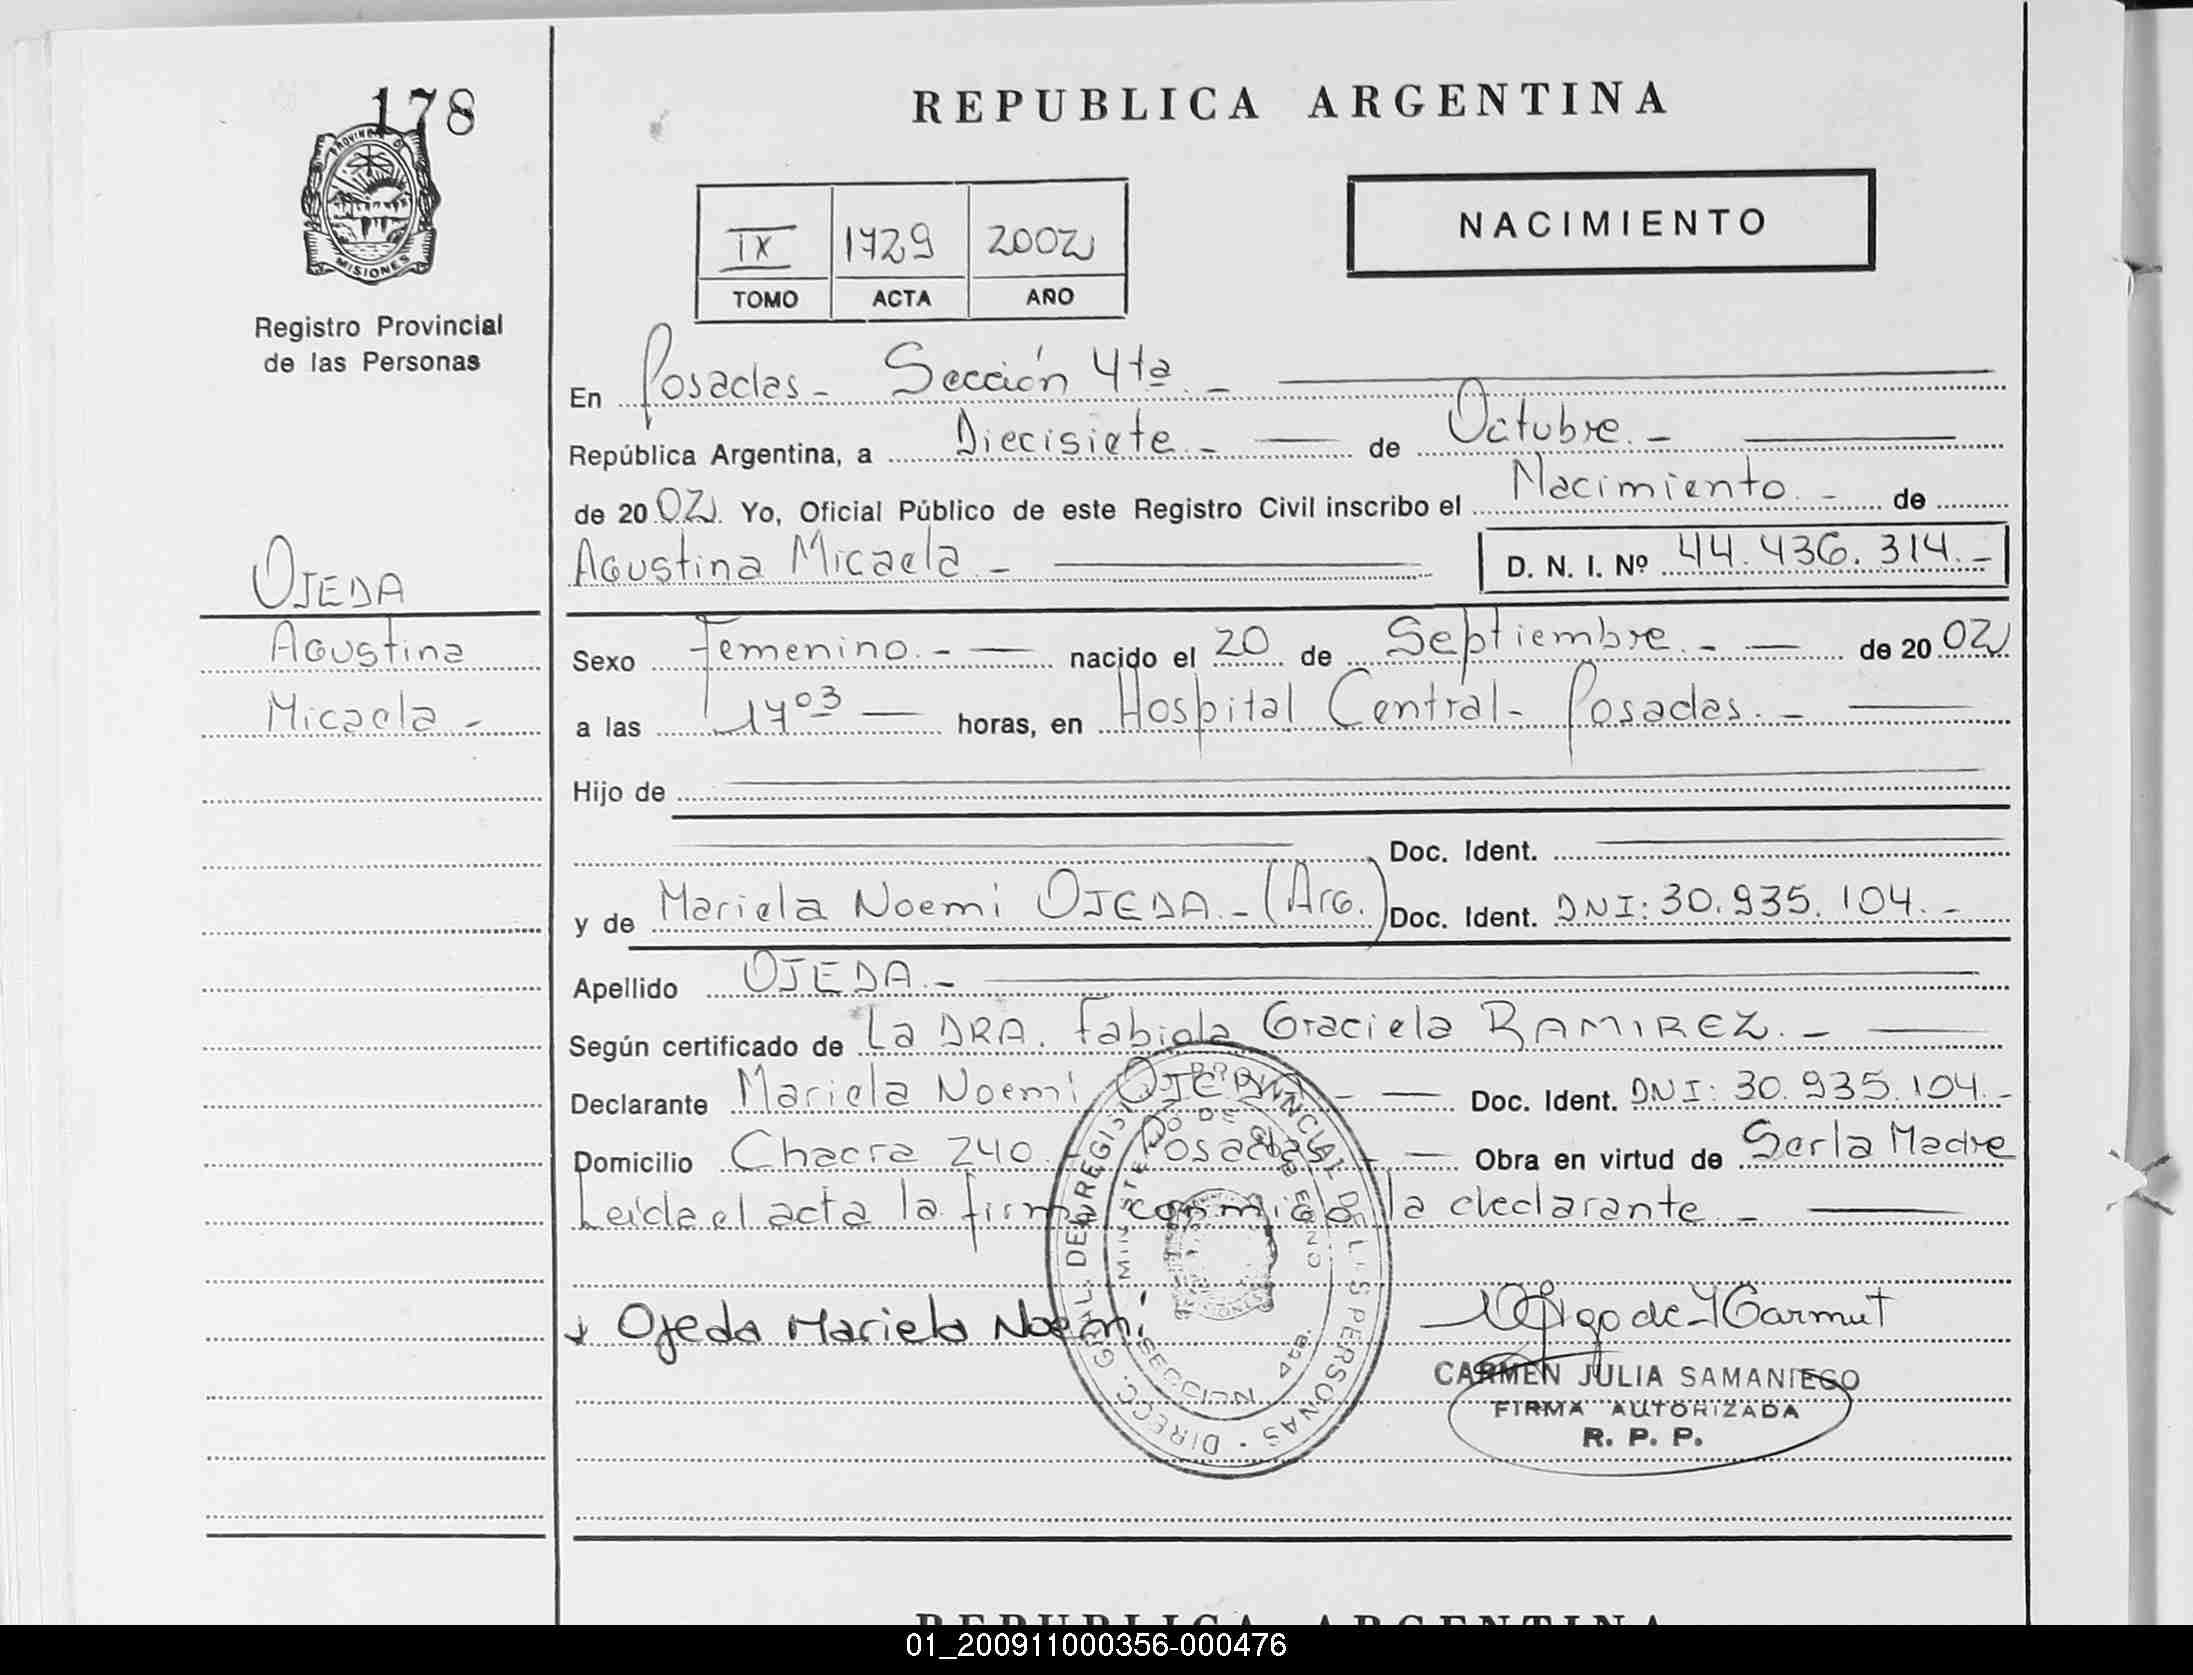 178
PROVINCIA D
MISIONES
Registro Provincial
de las Personas
OJEDA
Agustina
Micaela -
REPUBLICA ARGENTINA
IX 1729 2002
TOMO ACTA AÑO
NACIMIENTO
En Posadas - Sección 4ta. -
República Argentina, a Diecisiete. - de Octubre. -
de 20 02. Yo, Oficial Público de este Registro Civil inscribo el Nacimiento. - de
Agustina Micaela. - D. N. I. Nº 44.436.314. -
Sexo Femenino. - nacido el 20 de Septiembre. - de 20 02
a las 17 03 horas, en Hospital Central - Posadas. -
Hijo de
Doc. Ident.
y de Mariela Noemi OJEDA. - (Arg.) Doc. Ident. DNI: 30.935.104. -
Apellido OJEDA. -
Según certificado de La DRA. Fabiola Graciela RAMIREZ. -
Declarante Mariela Noemi OJEDA - Doc. Ident. DNI: 30.935.104. -
Domicilio Chacra 240. - Posadas - Obra en virtud de Ser la Madre
Leída el acta la firma conmigo la declarante. -
Ojeda Mariela Noemí
CARMEN JULIA SAMANIEGO
FIRMA AUTORIZADA
R. P. P.
DIRECC. GRAL. DEL REGIST PROVINCIAL DE LAS PERSONAS
SECCION 4ta.
REPUBLICA ARGENTINA
01_200911000356-000476